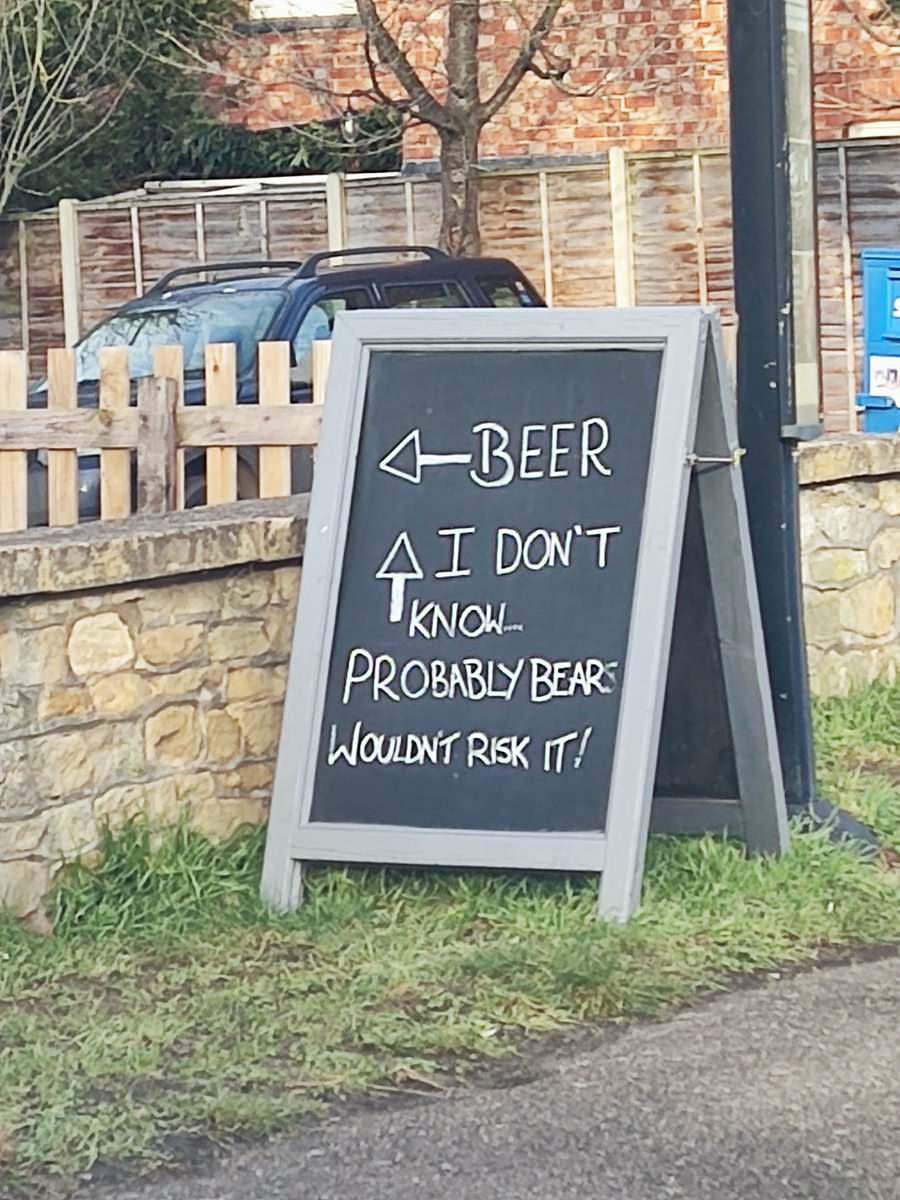 BEER
I DON'T
KNOW....
PROBABLY BEARS
WOULDN'T RISK IT!